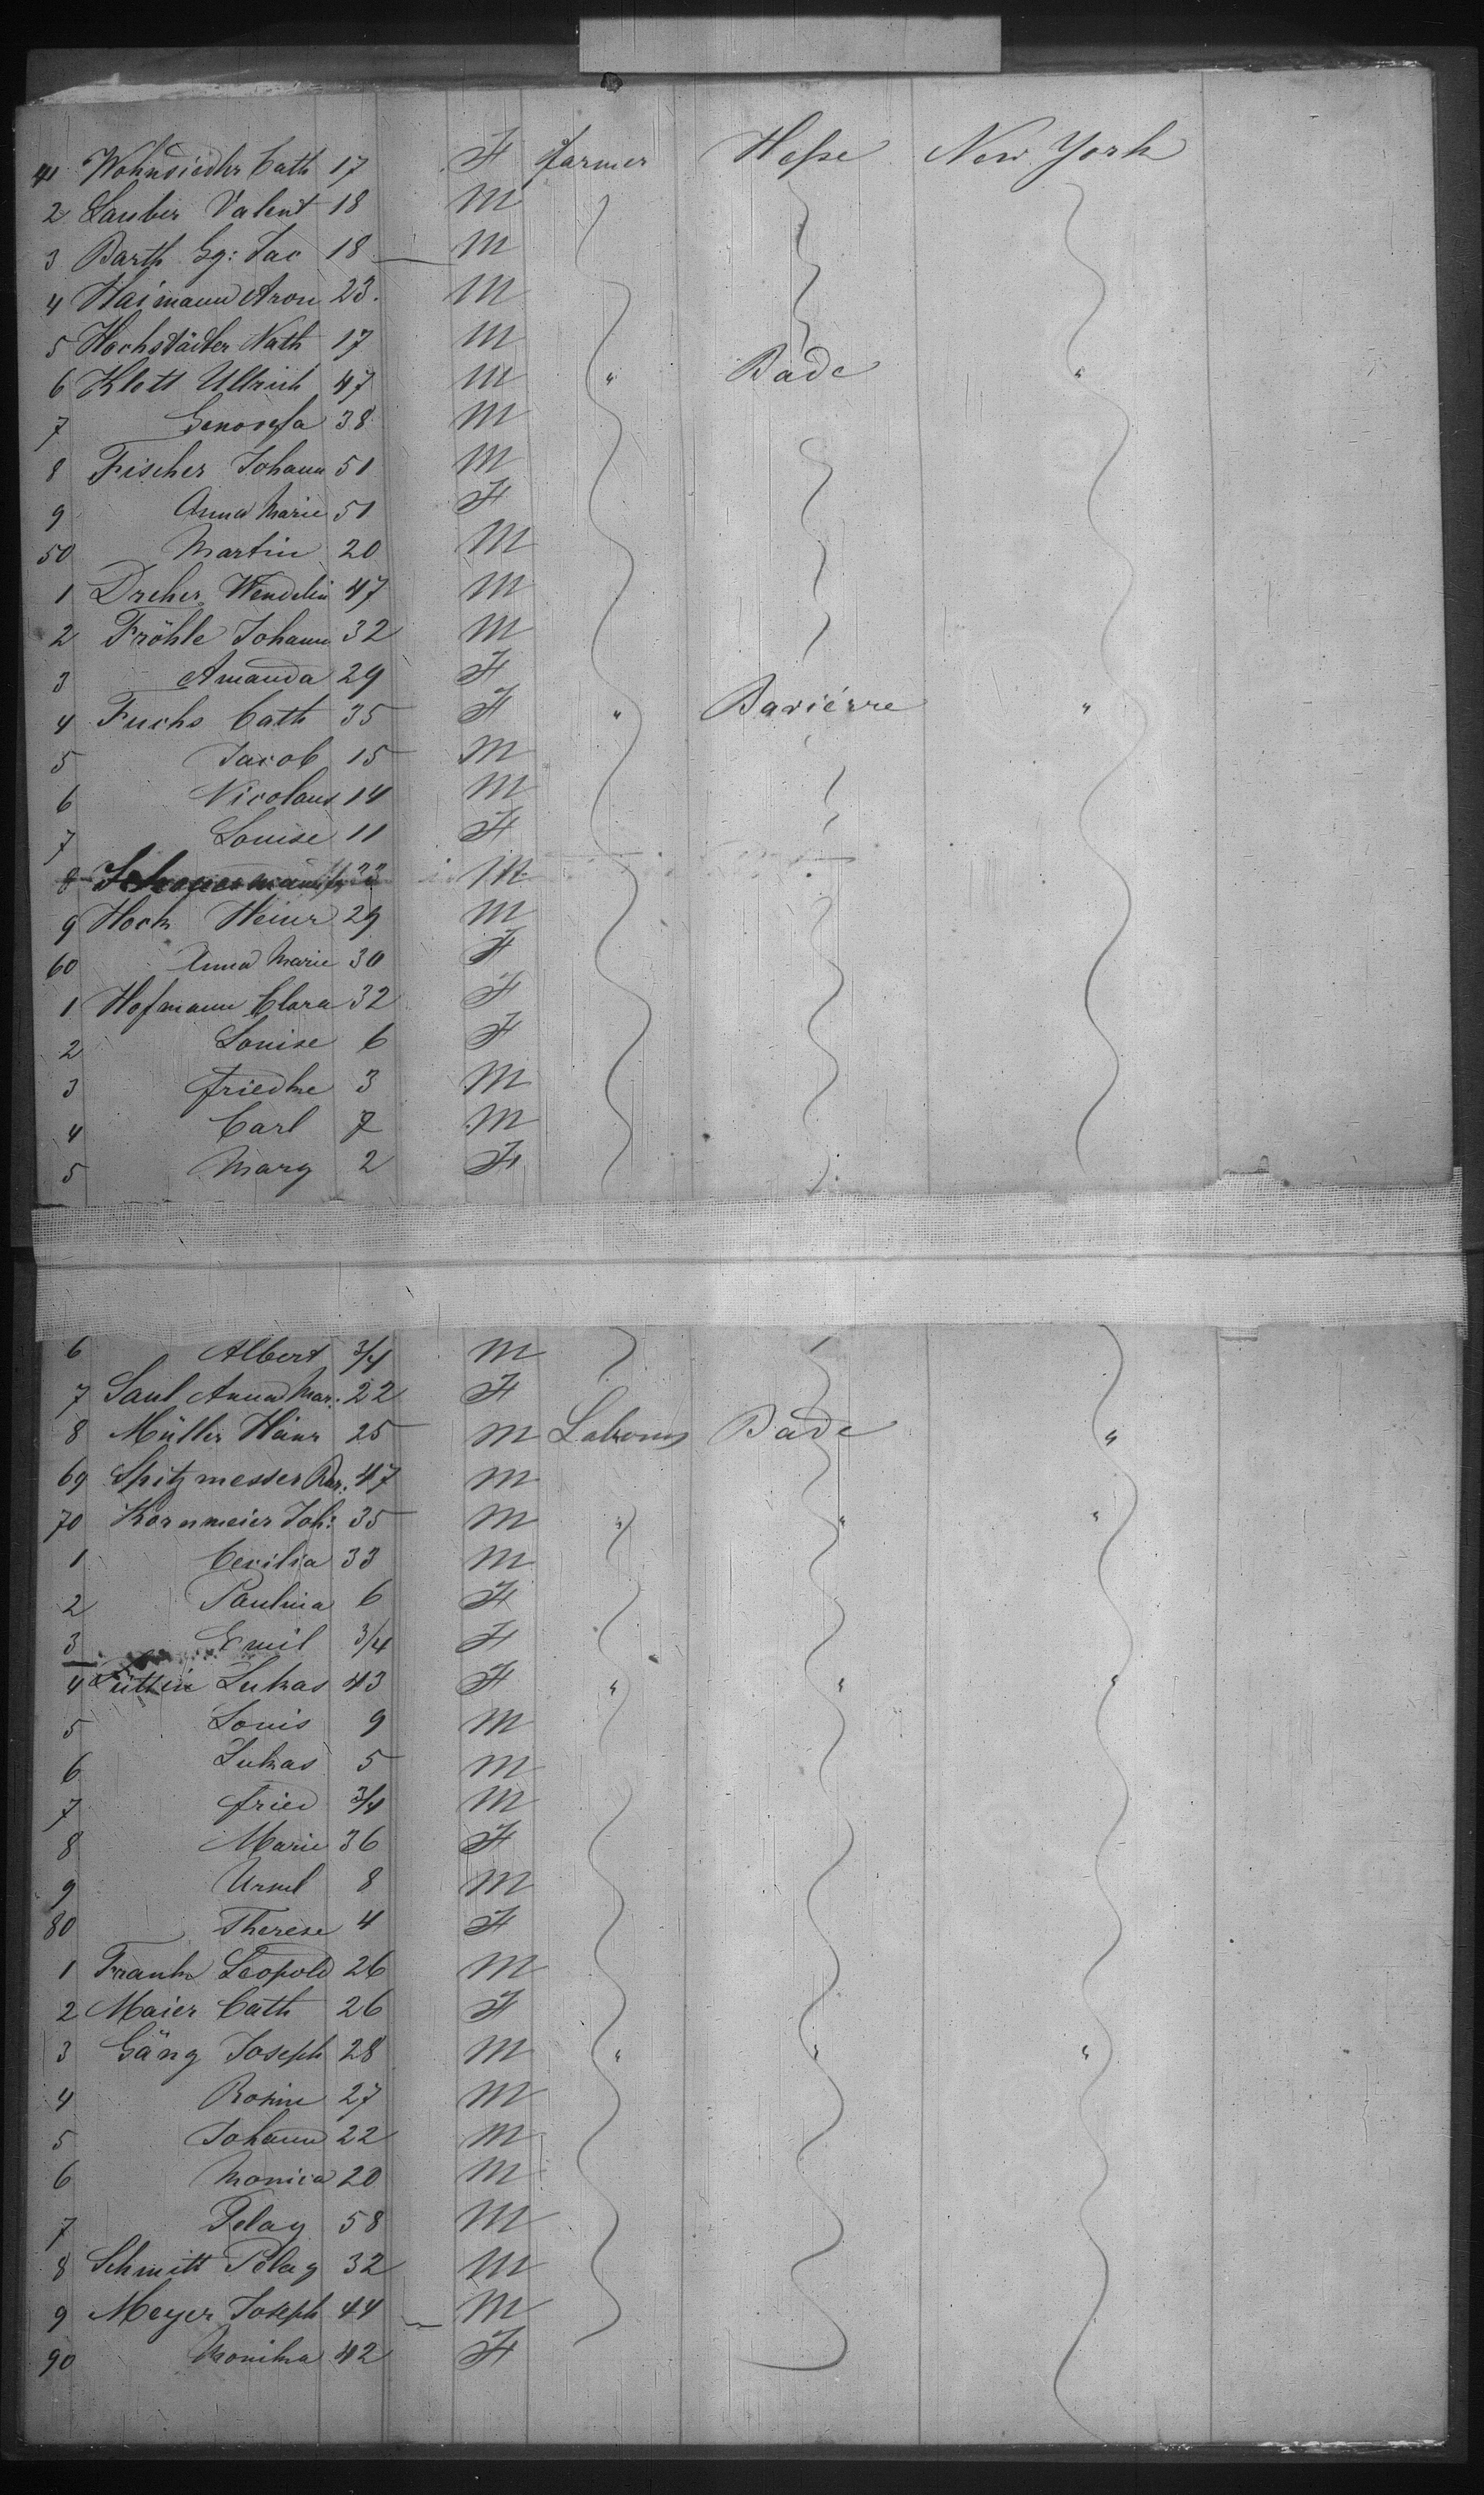 41 Wohnsiedler Cath 17 F farmer Hesse New York
2 Lauber Valent 18 M
3 Barth Gg: Jac 18 — M
4 Haimann Aron 23. M
5 Hochstädter Nath 17 M
6 Klett Ullrich 47 M " Bade "
7 Genovefa 38 M
8 Fischer Johann 51 M
9 Anna Marie 51 F
50 Martin 20 M
1 Dreher Wendelin 47 M
2 Fröhle Johann 32 M
3 Amanda 29 F
4 Fuchs Cath 35 F " Bavierre "
5 Jacob 15 M
6 Nicolaus 14 M
7 Louise 11 F
8 33 M
9 Hock Heinr 29 M
60 Anna Marie 30 F
1 Hofmann Clara 32 F
2 Louise 6 F
3 Friedke 3 M
4 Carl 7 M
5 Mary 2 F
6 Albert 3/4 M
7 Saul Anna Mar: 22 F
8 Müller Hänr 25 M Bade "
69 Spitzmesser Bar: 47 M
70 Kornmeier Joh: 35 M " " "
1 Cecilia 33 M
2 Paulina 6 F
3 Emil 3/4 F
4 Lüttin Lukas 43 F " " "
5 Louis 9 M
6 Lukas 5 M
7 Fried 3/4 M
8 Marie 36 F
9 8 M
80 Therese 4 F
1 Frank Leopold 26 M
2 Maier Cath 26 F
3 Gäng Joseph 28 M " " "
4 Rosine 27 M
5 Johann 22 M
6 Monica 20 M
7 Pelag 58 M
8 Schmitt Pelag 32 M
9 Meyer Joseph 44 — M
90 Monika 42 F